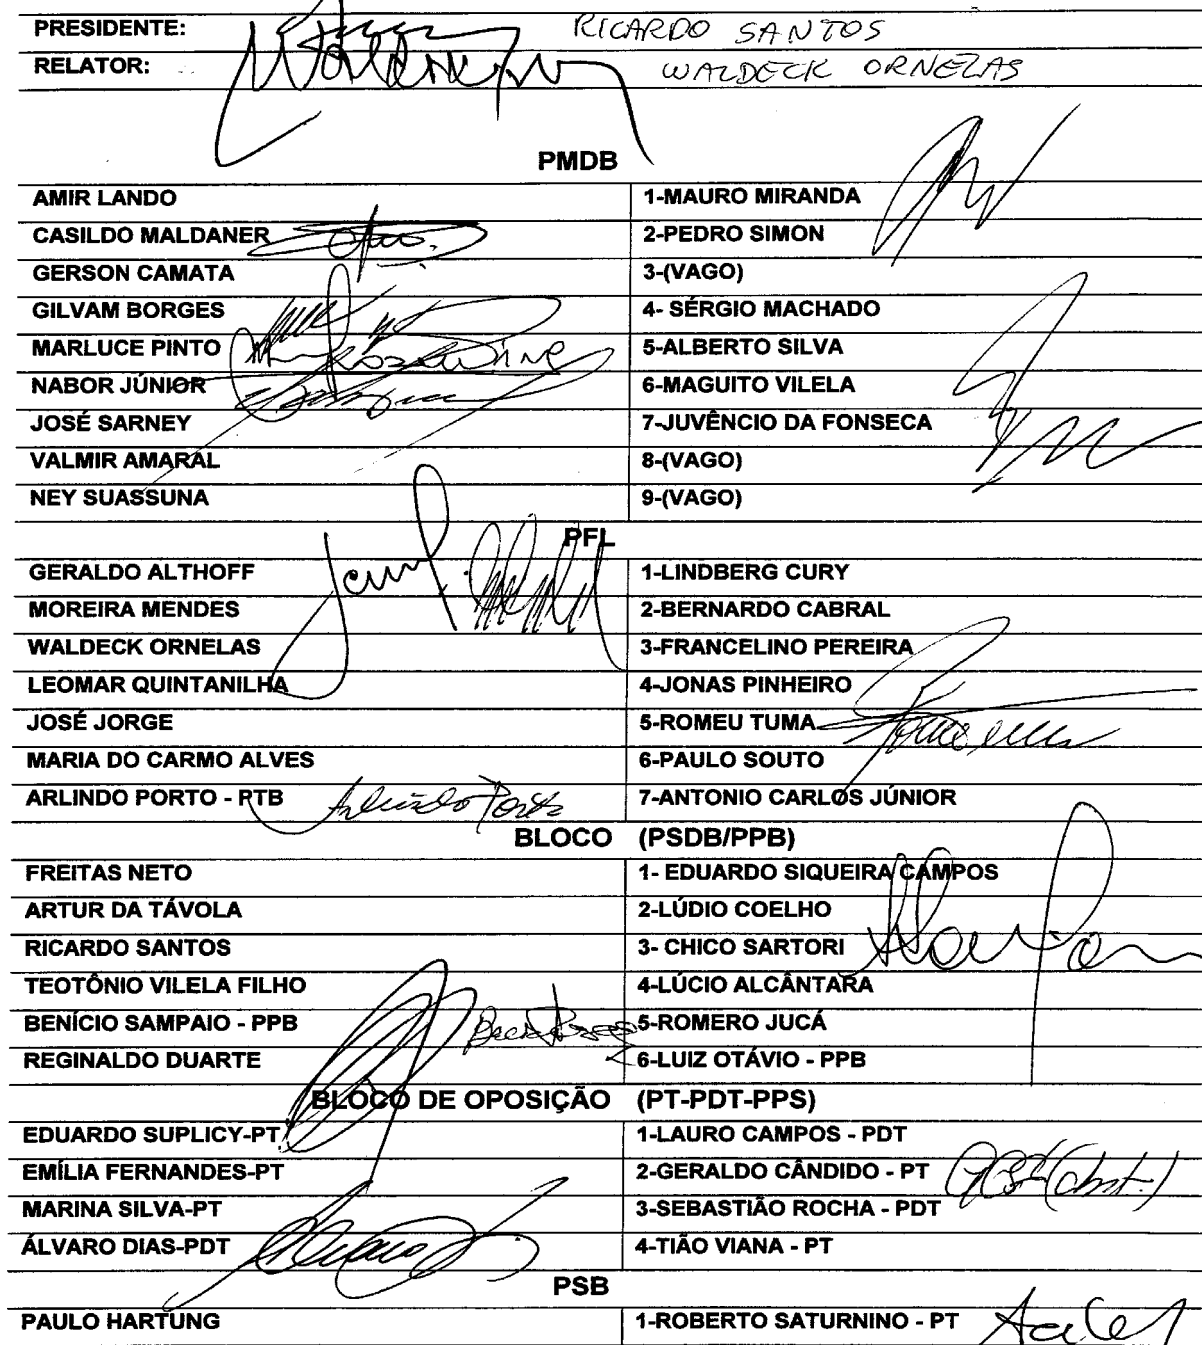 PRESIDENTE: RICARDO SANTOS
RELATOR: WALDECK ORNELAS
PMDB
AMIR LANDO 1-MAURO MIRANDA
CASILDO MALDANER 2-PEDRO SIMON
GERSON CAMATA 3-(VAGO)
GILVAM BORGES 4- SÉRGIO MACHADO
MARLUCE PINTO 5-ALBERTO SILVA
NABOR JÚNIOR 6-MAGUITO VILELA
JOSÉ SARNEY 7-JUVÊNCIO DA FONSECA
VALMIR AMARAL 8-(VAGO)
NEY SUASSUNA 9-(VAGO)
PFL
GERALDO ALTHOFF 1-LINDBERG CURY
MOREIRA MENDES 2-BERNARDO CABRAL
WALDECK ORNELAS 3-FRANCELINO PEREIRA
LEOMAR QUINTANILHA 4-JONAS PINHEIRO
JOSÉ JORGE 5-ROMEU TUMA
MARIA DO CARMO ALVES 6-PAULO SOUTO
ARLINDO PORTO - PTB Arlindo Porto 7-ANTONIO CARLOS JÚNIOR
BLOCO (PSDB/PPB)
FREITAS NETO 1- EDUARDO SIQUEIRA CAMPOS
ARTUR DA TÁVOLA 2-LÚDIO COELHO
RICARDO SANTOS 3- CHICO SARTORI
TEOTÔNIO VILELA FILHO 4-LÚCIO ALCÂNTARA
BENÍCIO SAMPAIO - PPB 5-ROMERO JUCÁ
REGINALDO DUARTE 6-LUIZ OTÁVIO - PPB
BLOCO DE OPOSIÇÃO (PT-PDT-PPS)
EDUARDO SUPLICY-PT 1-LAURO CAMPOS - PDT
EMÍLIA FERNANDES-PT 2-GERALDO CÂNDIDO - PT (abst.)
MARINA SILVA-PT 3-SEBASTIÃO ROCHA - PDT
ÁLVARO DIAS-PDT 4-TIÃO VIANA - PT
PSB
PAULO HARTUNG 1-ROBERTO SATURNINO - PT